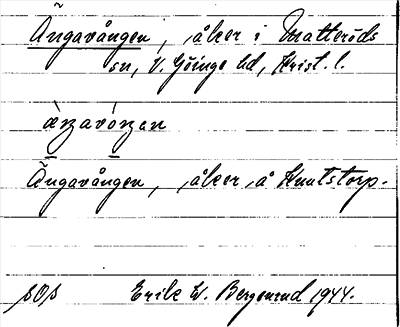 Ängavången, åker i Matteröds
sn, V. Göinge hd, Krist. l.
àŋavóŋen
Ängavången, åker å Knutstorp.
sOs Erik W. Bergonrud 1944.